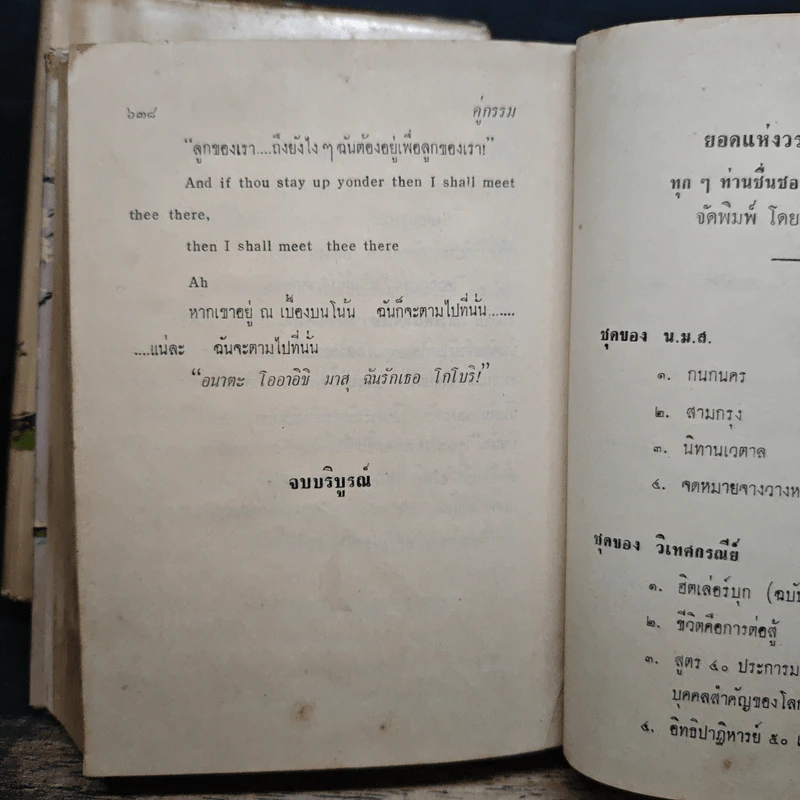 ๖๓๘ คู่กรรม
“ลูกของเรา....ถึงยังไง ๆ ฉันต้องอยู่เพื่อลูกของเรา!”
And if thou stay up yonder then I shall meet
thee there,
then I shall meet thee there
Ah
หากเขาอยู่ ณ เบื้องบนโน้น ฉันก็จะตามไปที่นั้น.......
....แน่ละ ฉันจะตามไปที่นั้น
“อนาตะ โออาอิชิ มาสุ ฉันรักเธอ โกโบริ!”
จบบริบูรณ์
ยอดแห่งวร
ทุก ๆ ท่านชื่นชอ
จัดพิมพ์ โดย
ชุดของ น.ม.ส.
๑. กนกนคร
๒. สามกรุง
๓. นิทานเวตาล
๔. จดหมายจางวางห
ชุดของ วิเทศกรณีย์
๑. ฮิตเล่อร์บุก (ฉบับ
๒. ชีวิตคือการต่อสู้
๓. สูตร ๔๐ ประการม
บุคคลสำคัญของโลก
๔. อิทธิปาฏิหารย์ ๕๐ เ